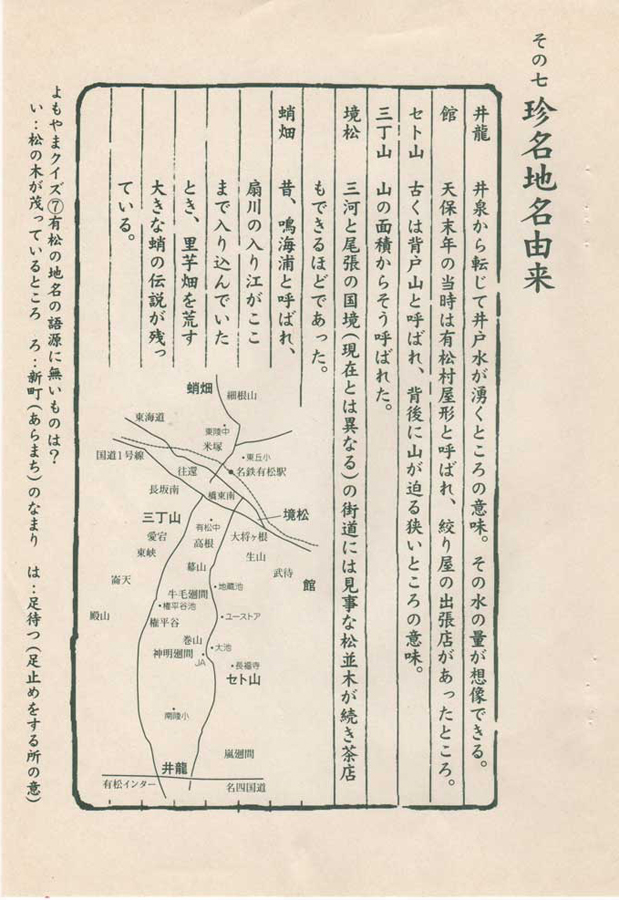 その七 珍名地名由来
井龍 井泉から転じて井戸水が湧くところの意味。その水の量が想像できる。
館 天保末年の当時は有松村屋形と呼ばれ、絞り屋の出張店があったところ。
セト山 古くは背戸山と呼ばれ、背後に山が迫る狭いところの意味。
三丁山 山の面積からそう呼ばれた。
境松 三河と尾張の国境(現在とは異なる)の街道には見事な松並木が続き茶店
もできるほどであった。
蛸畑 昔、鳴海浦と呼ばれ、
扇川の入り江がここ
まで入り込んでいた
とき、里芋畑を荒す
大きな蛸の伝説が残っ
ている。
蛸畑
細根山
東海道
東陵中
米塚
国道1号線
東丘小
往還
名鉄有松駅
長坂南
橋東南
三丁山
境松
有松中
愛宕
高根
大将ヶ根
東峡
生山
墓山
武待
嵩天
地蔵池
館
牛毛廻間
権平谷池
殿山
権平谷
ユーストア
巻山
大池
神明廻間
JA
長福寺
セト山
南陵小
嵐廻間
井龍
有松インター
名四国道
よもやまクイズ⑦有松の地名の語源に無いものは?
い:松の木が茂っているところ ろ:新町(あらまち)のなまり は:足待つ(足止めをする所の意)